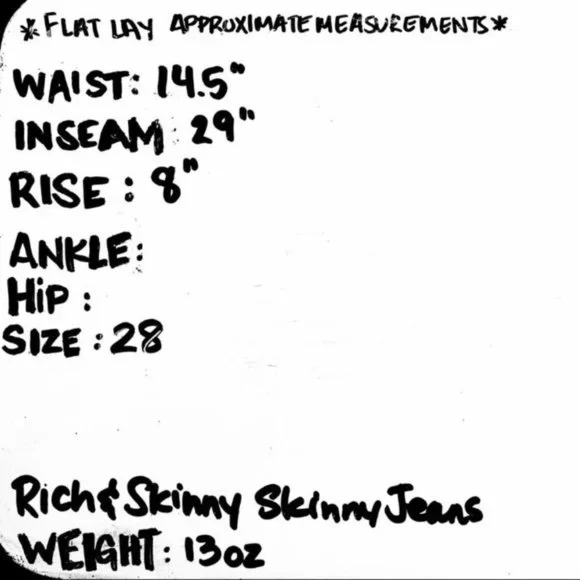 *FLAT LAY APPROXIMATE MEASUREMENTS*
WAIST: 14.5"
INSEAM: 29"
RISE: 8"
ANKLE:
HiP:
SIZE: 28
Rich & Skinny Skinny Jeans
WEIGHT: 13oz